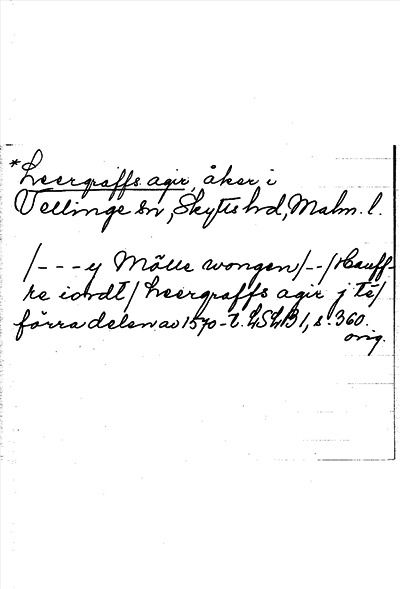 *Leergraffs agir, åker i
Vellinge sn, Skytts hd, Malm. l.
/---y Mölle wongen/--/Hauff-
re iordt/Leergraffs agir j té/
förra delen av 1570-t. LSLB 1, s. 360.
orig.